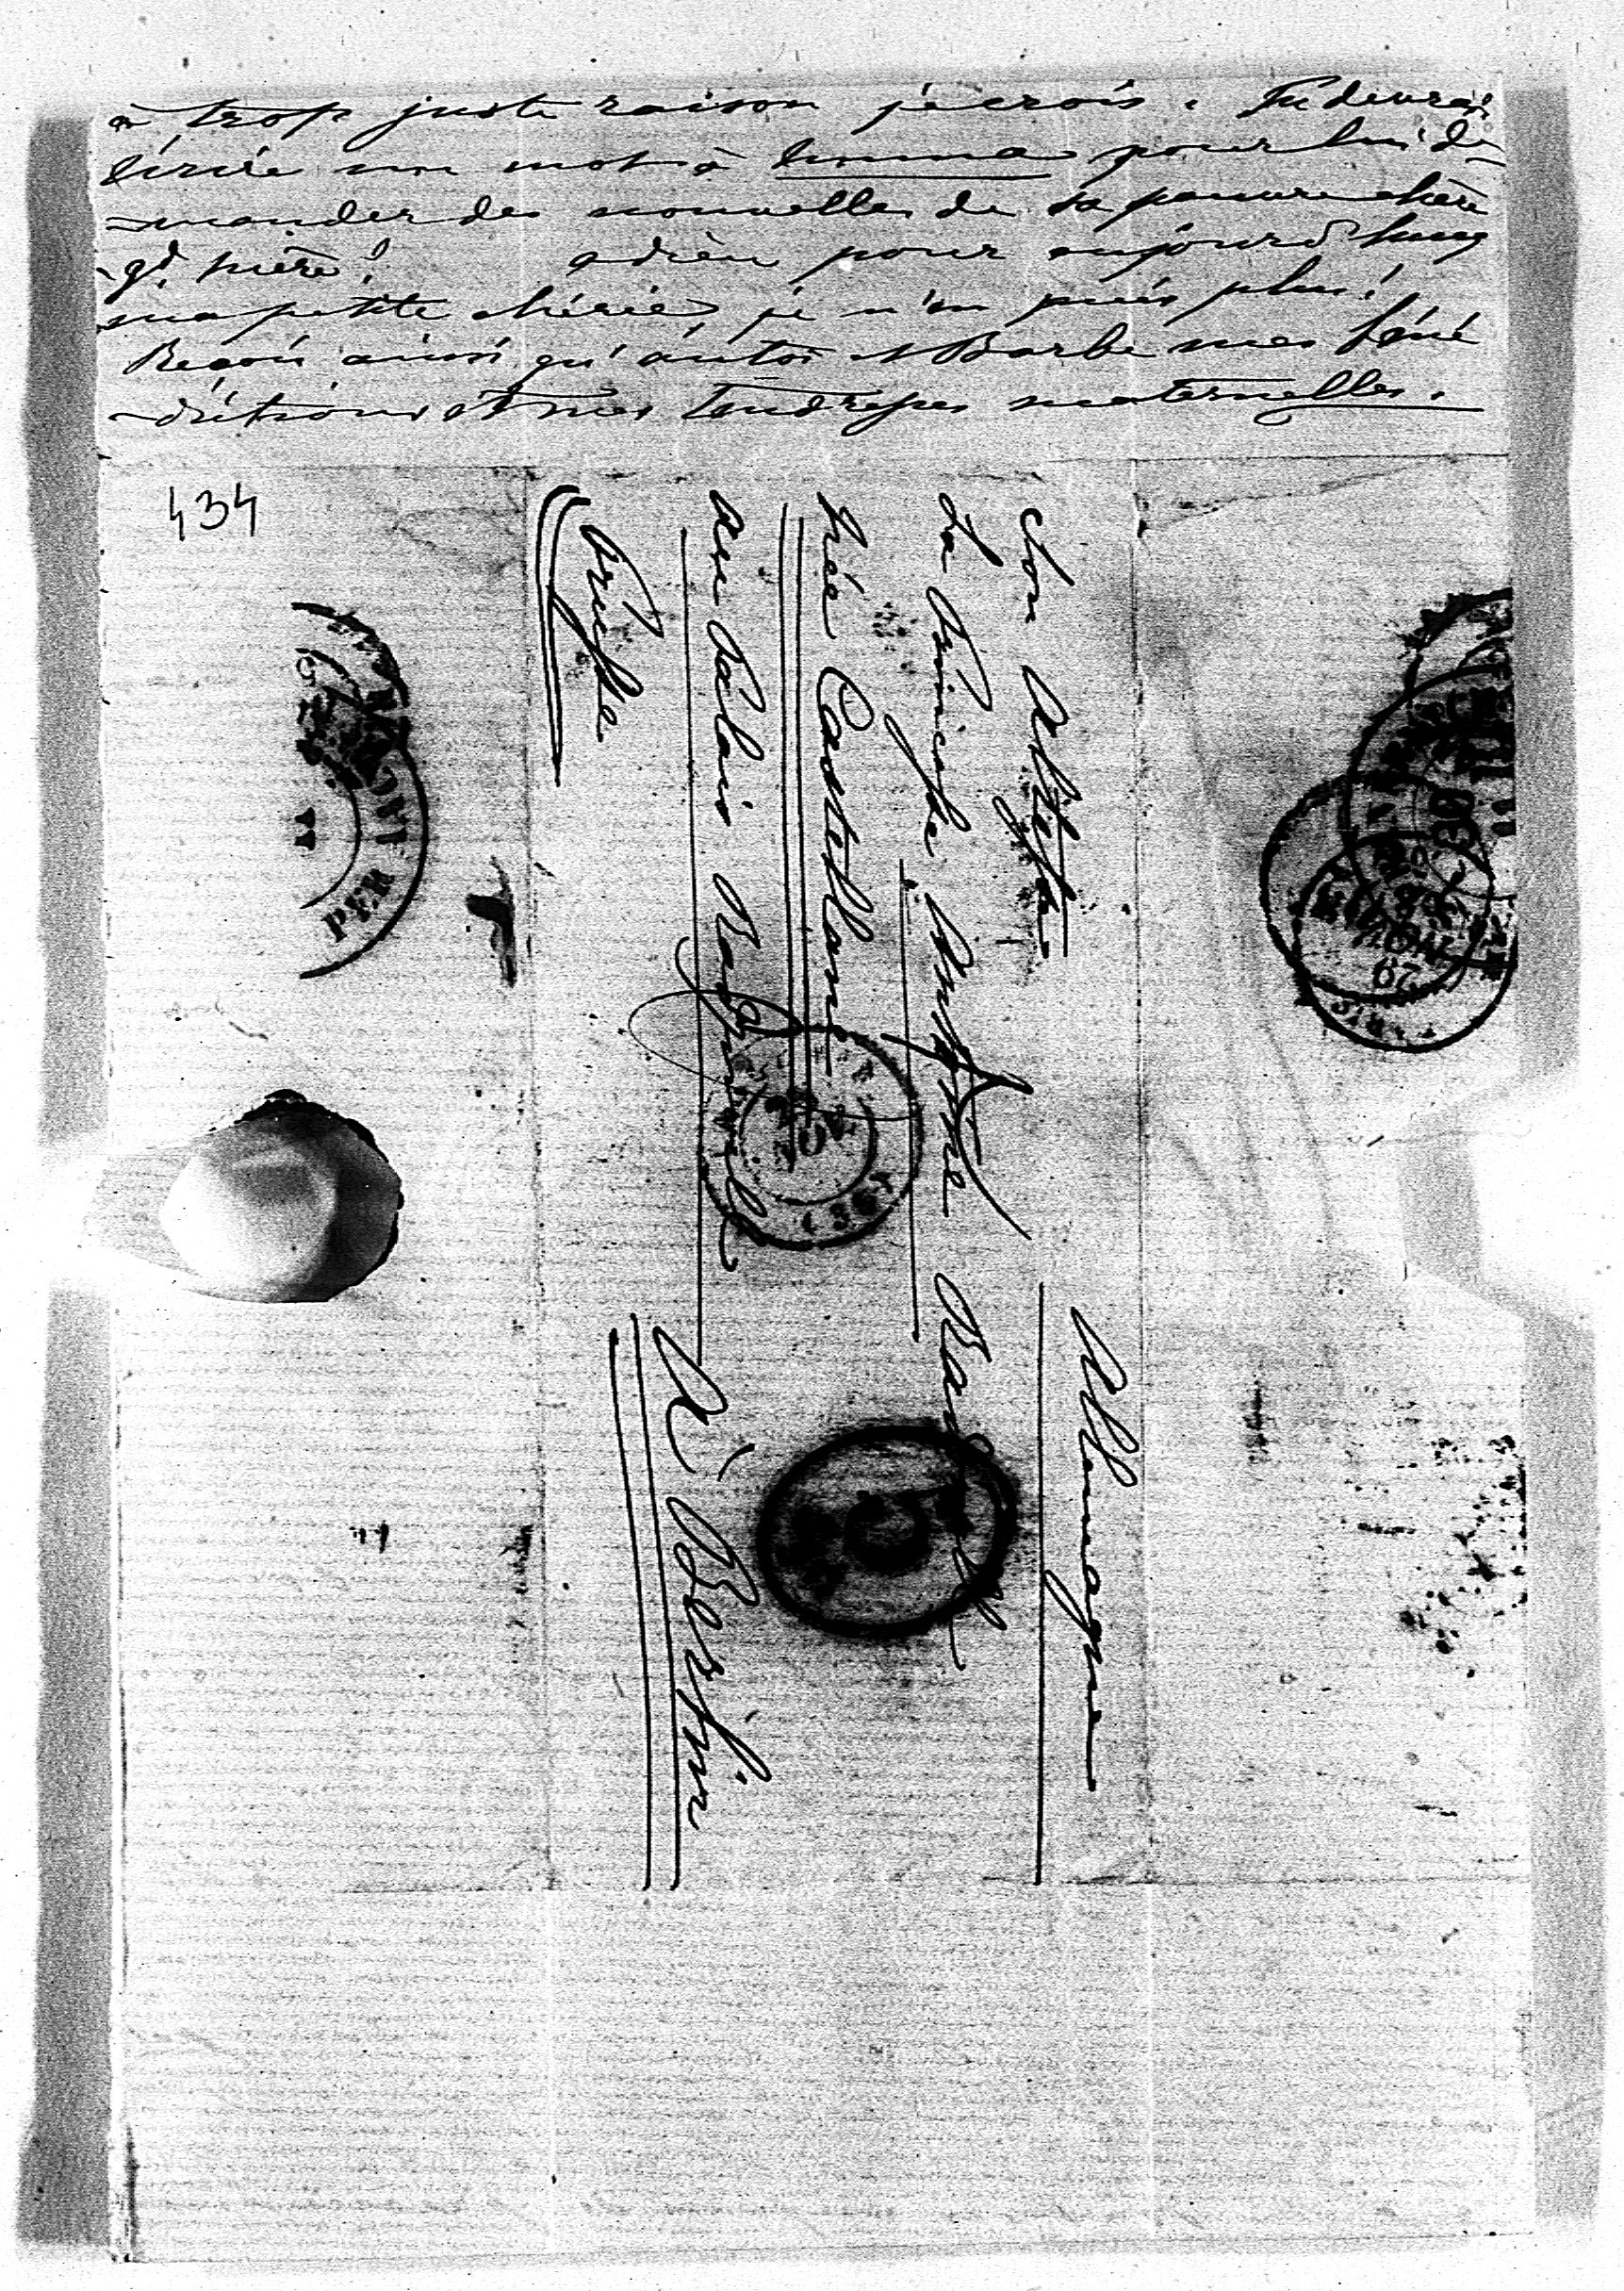 à trop juste raison je crois. Tu devrais
écrire un mot à Emma pour lui de-
-mander des nouvelles de sa pauvre chère
gd. mère! adieu pour aujourd'hui
ma petite chérie, je n'en puis plus!
Reçois ainsi qu'antoi et Barbe mes béné
-dictions et mes tendresses maternelles.
434
Allemagne
Son Altesse
La Princesse Antoine Radziwill
née Castellane
au Palais Radziwill
à Berlin
Prusse